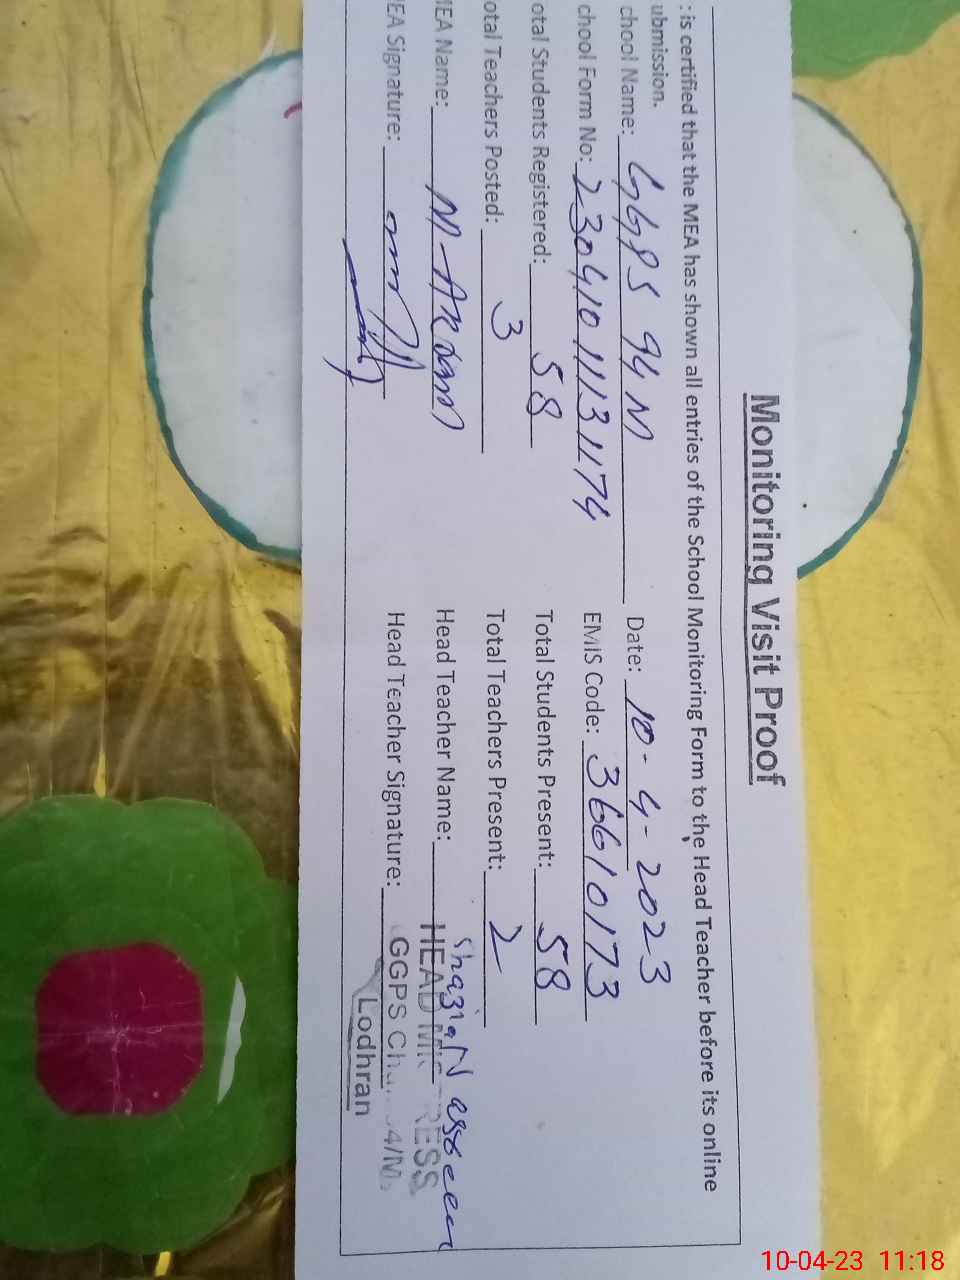 Monitoring Visit Proof
: is certified that the MEA has shown all entries of the School Monitoring Form to the Head Teacher before its online
ubmission.
chool Name: GGPS 94 M Date: 10-4-2023
chool Form No: EMIS Code: 36610173
otal Students Registered: 58 Total Students Present: 58
otal Teachers Posted: 3 Total Teachers Present: 2
MEA Name: M-Akram Head Teacher Name: Shazia Naseem
MEA Signature: Head Teacher Signature:
HEAD MISTRESS
GGPS 4/M
Lodhran
10-04-23 11:18